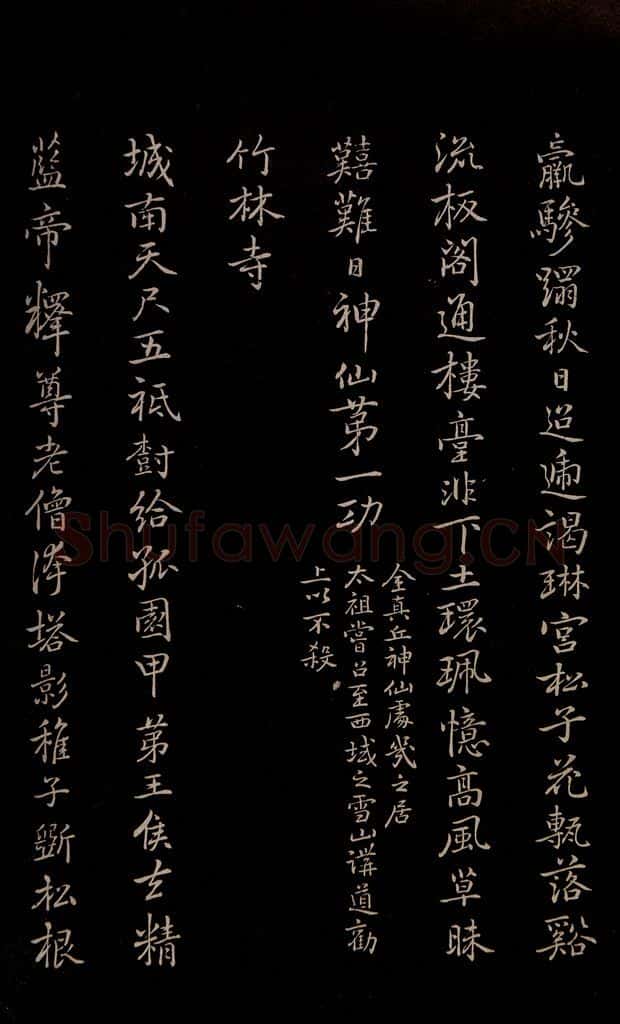 羸驂蹋秋日迢逓謁琳宮松子花甎落谿
流板閣通樓臺非下土環珮憶高風草昧
囏難日神仙第一功
全真丘神仙處幾之居
太祖嘗召至西域之雪山講道勸
上以不殺
竹林寺
城南天尺五祗樹給孤園甲第王侯去精
藍帝釋尊老僧誇塔影稚子斲松根
Shufawang.CN